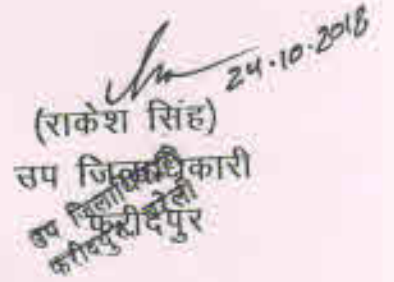 24.10.2018
(राकेश सिंह)
उप जिलाधिकारी
फरीदपुर
उप जिलाधिकारी
फरीदपुर, बरेली